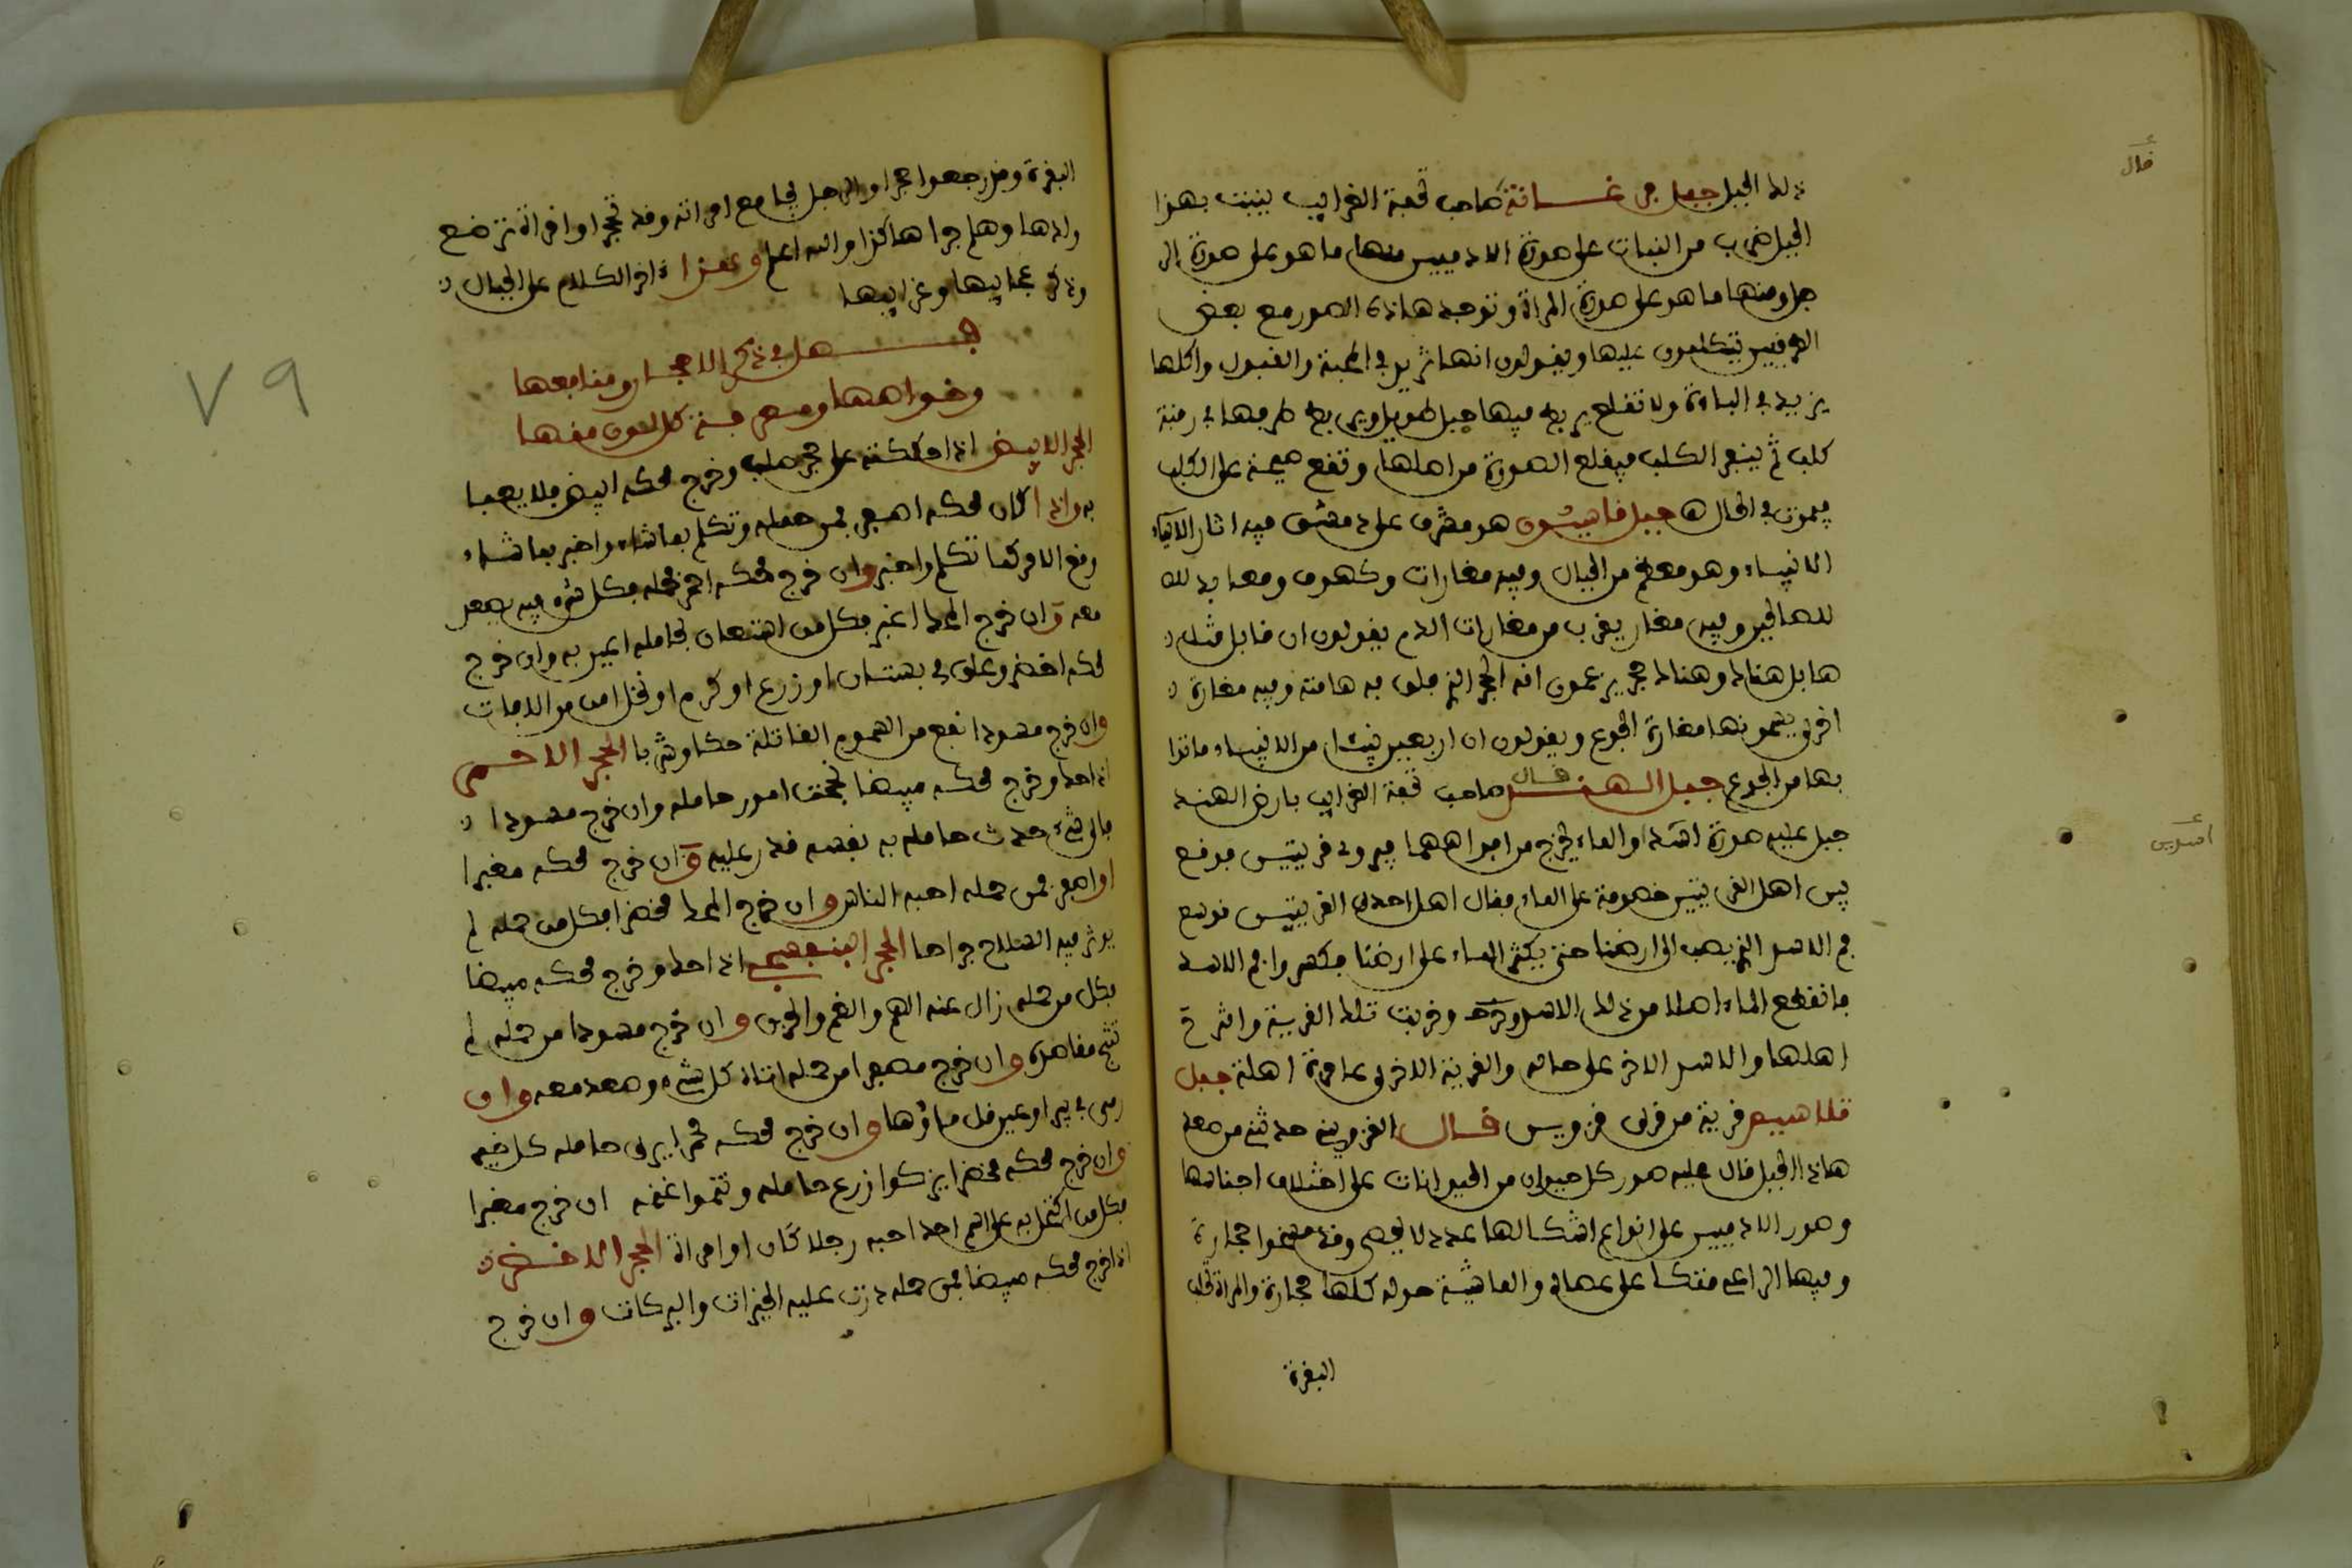 قال
ذلك الجبل جبل فرغانة صاحب تحفة الغرايب ينبت بهذا
الجبل ضرب من النبات على صورة الادميين منها ما هو على صورة الر
جل ومنها ما هو على صورة المراة وتوجد هاذه الصور مع بعض
الطرقيين يتكلمون عليها ويقولون انها تزيد في المحبة والقبول واكلها
يزيد في الباءة ولا تقلع يربط فيها حبل طويل ويربط طرفها في رقبة
كلب ثم ينفر الكلب فيقلع الصورة من اصلها وتقع صيحة على الكلب
فيموت في الحال جبل قاسيون هو مشرف على دمشق فيه اثار الانبياء
الانبياء وهو معظم من الجبال وفيه مغارات وكهوف ومعابد لله
للصالحين وفيه مغار يقرب من مغارات الدم يقولون ان قابل قتل
هابيل هناك وهناك حجر يزعمون انه الحجر الذي فلق به هامته وفيه مغارة
اخرى يسمونها مغارة الجوع ويقولون ان اربعين نبيئا من الانبياء ماتوا
بها من الجوع جبل الهند قال صاحب تحفة الغرايب بارض الهند
جبل عليه صورة اسد او الماء يخرج من افواههما فيروي قريتين فوقع
بين اهل القريتين خصومة على الماء فقال اهل احدى القريتين نوسع
فم الاسد الذي يصب الى ارضنا حتى يكثر الماء على ارضنا فكسروا فم الاسد
فانقطع الماء اصلا من ذلك الاسد وخربت تلك القرية وانزح
اهلها والاسد الاخر على حاله والقرية الاخرى عامرة اهلة جبل
قلاسيم قرية من قرى قزوين قال القزويني حدثني من صعد
هاذا الجبل قال عليه صور كل حيوان من الحيوانات على اختلاف اجناسها
وصور الادميين على انواع اشكالها عدد لا يحصى وقد مسخوا حجارة
وفيها الراعي متكئا على عصاه والماشية حوله كلها حجارة والمراة تحلب
البقرة
اسدين
٧٩
البقرة وقد رجعوا حجرا والرجل يجامع امراته وقد تحجرا وامراة ترضع
ولدها وهلم جرا هاكذا والله اعلم وهذا اخر الكلام على الجبال
وذكر عجايبها وغرايبها
فصل في ذكر الاحجار ومنافعها
وخواصها ومعرفة كل لون منها
الحجر الابيض اذا حككته على حجر صلب وخرج محكه ابيض فلا يعبا
به واذا كان محكه اصفر فمن حمله وتكلم بما شاء واخبر بما شاء
وقع الامر كما تكلم واخبر وان خرج محكه احمر فحامله فكل شيء فيه يسعد
معه وان خرج المحك اغبر فكل من استعان بحامله اعين به وان خرج
محكه اخضر وعلق في بستان او زرع او كرم او نخل امن من الافات
وان خرج مسودا نفع من السموم القاتلة حكا وشربا الحجر الاحمر
اذا حك وخرج محكه مبيضا نجحت امور حامله وان خرج مسودا
فاي شيء حدث حامله به نفسه قدر عليه وان خرج محكه مغبرا
او اصفر فمن حمله احبه الناس وان خرج المحك مخضرا فكل من حمله لم
يوثر فيه السلاح جراحا الحجر البنفسجي اذا حك وخرج محكه مبيضا
فكل من حمله زال عنه الهم والغم والحزن وان خرج مسودا من حمله لم
تنجح مقاصده وان خرج مصفرا من حمله اتاه كل شيء وصعد معه وان
رمي في بير او عين قل ماؤها وان خرج محكه محمرا يرى حامله كل خير
وان خرج محكه مخضرا يزكوا زرع حامله وتنموا غنمه ان خرج مغبرا
فكل من اكتحل به على اسم احد احبه رجلا كان او امراة الحجر الاخضر
اذا خرج محكه مبيضا فمن حمله درت عليه الخيرات والبركات وان خرج